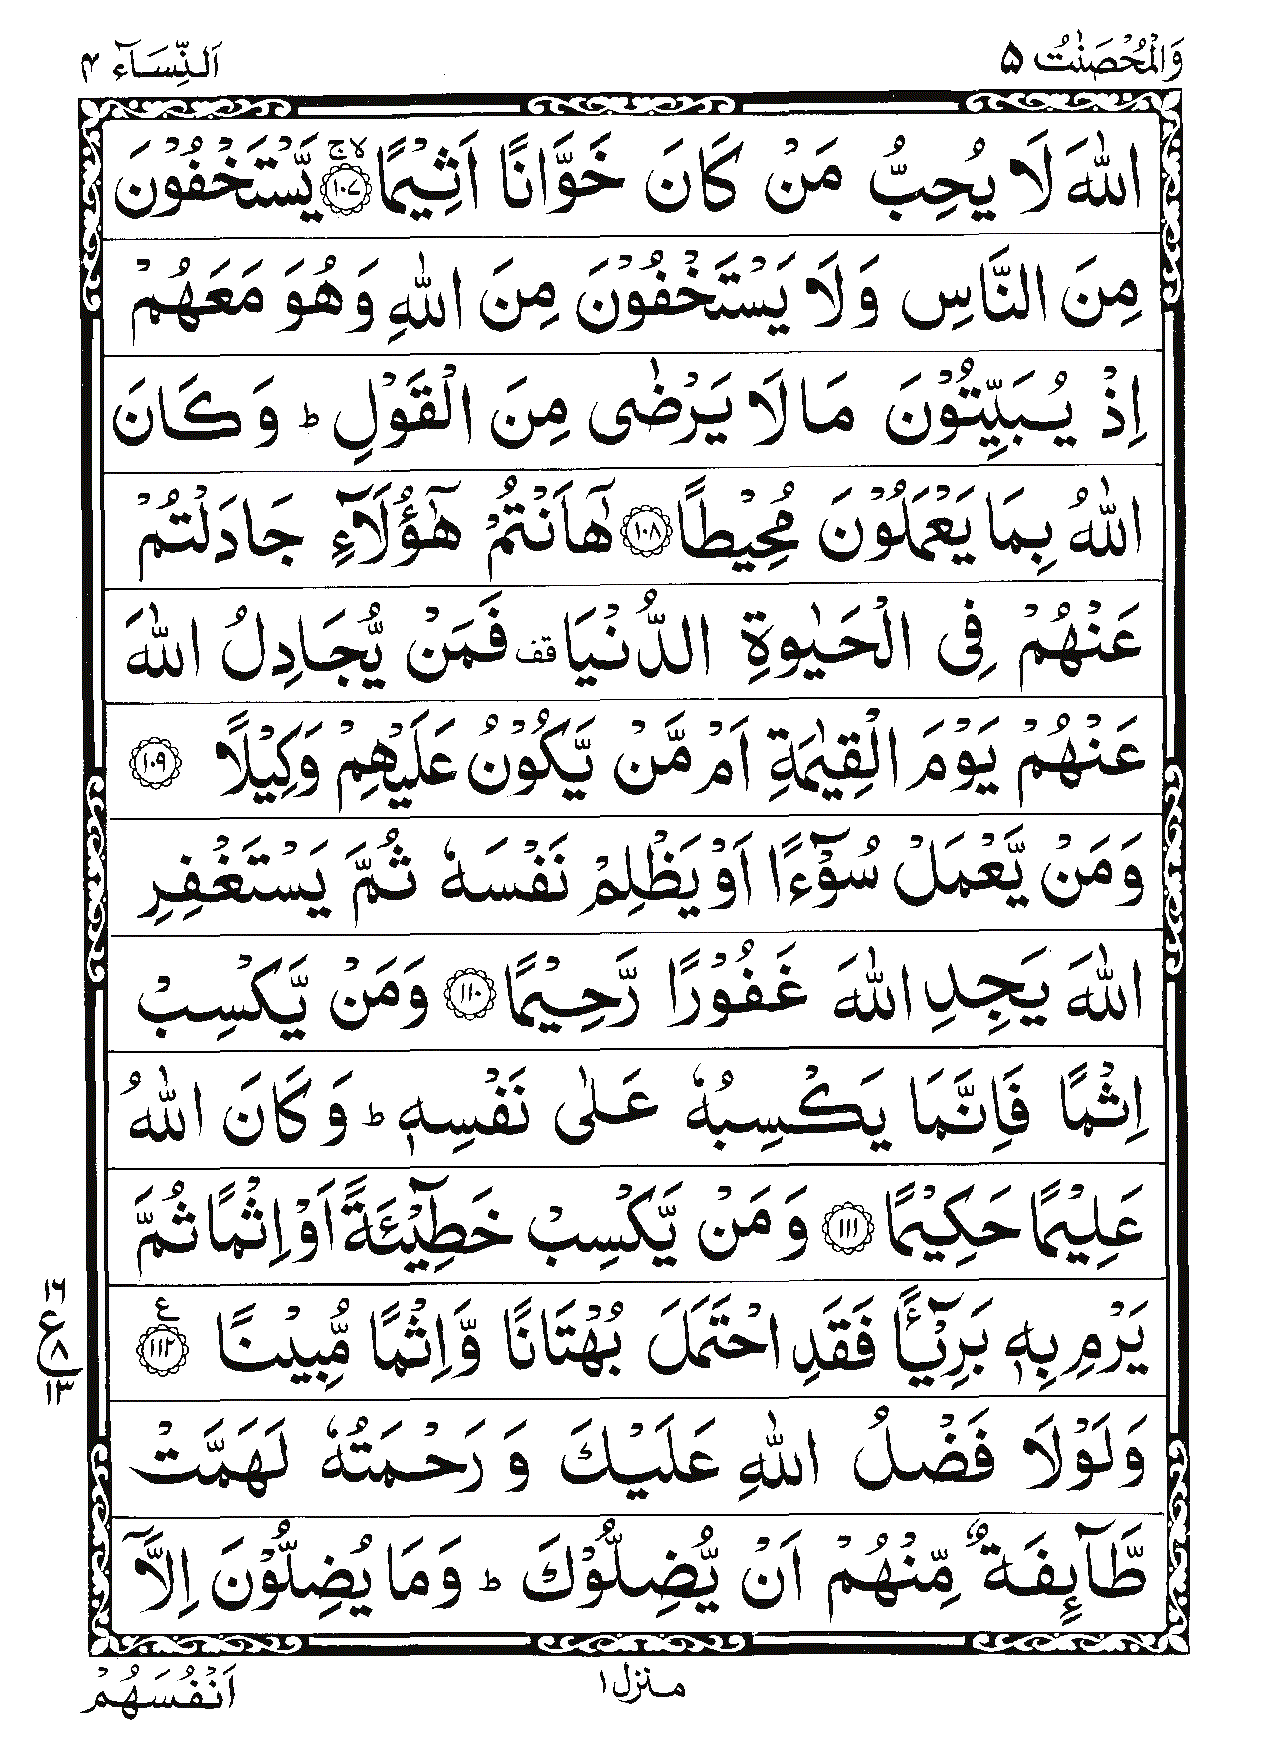 وَالْمُحْصَنٰتُ ۵ اَلنِّسَآء ۴
اللّٰهَ لَا يُحِبُّ مَنْ كَانَ خَوَّانًا اَثِيْمًا ۙۚ ﴿١٠٧﴾ يَّسْتَخْفُوْنَ
مِنَ النَّاسِ وَلَا يَسْتَخْفُوْنَ مِنَ اللّٰهِ وَهُوَ مَعَهُمْ
اِذْ يُبَيِّتُوْنَ مَا لَا يَرْضٰى مِنَ الْقَوْلِ ؕ وَكَانَ
اللّٰهُ بِمَا يَعْمَلُوْنَ مُحِيْطًا ﴿١٠٨﴾ هٰۤاَنْتُمْ هٰۤؤُلَآءِ جَادَلْتُمْ
عَنْهُمْ فِى الْحَيٰوةِ الدُّنْيَا قف فَمَنْ يُّجَادِلُ اللّٰهَ
عَنْهُمْ يَوْمَ الْقِيٰمَةِ اَمْ مَّنْ يَّكُوْنُ عَلَيْهِمْ وَكِيْلًا ﴿١٠٩﴾
وَمَنْ يَّعْمَلْ سُوْٓءًا اَوْ يَظْلِمْ نَفْسَهٗ ثُمَّ يَسْتَغْفِرِ
اللّٰهَ يَجِدِ اللّٰهَ غَفُوْرًا رَّحِيْمًا ﴿١١٠﴾ وَمَنْ يَّكْسِبْ
اِثْمًا فَاِنَّمَا يَكْسِبُهٗ عَلٰى نَفْسِهٖ ؕ وَكَانَ اللّٰهُ
عَلِيْمًا حَكِيْمًا ﴿١١١﴾ وَمَنْ يَّكْسِبْ خَطِيْٓئَةً اَوْ اِثْمًا ثُمَّ
يَرْمِ بِهٖ بَرِيْٓـًٔا فَقَدِ احْتَمَلَ بُهْتَانًا وَّاِثْمًا مُّبِيْنًا ﴿١١٢﴾ ع
١٦ ع ٨ ١٣
وَلَوْلَا فَضْلُ اللّٰهِ عَلَيْكَ وَرَحْمَتُهٗ لَهَمَّتْ
طَّآئِفَةٌ مِّنْهُمْ اَنْ يُّضِلُّوْكَ ؕ وَمَا يُضِلُّوْنَ اِلَّآ
منزل ١ اَنْفُسَهُمْ